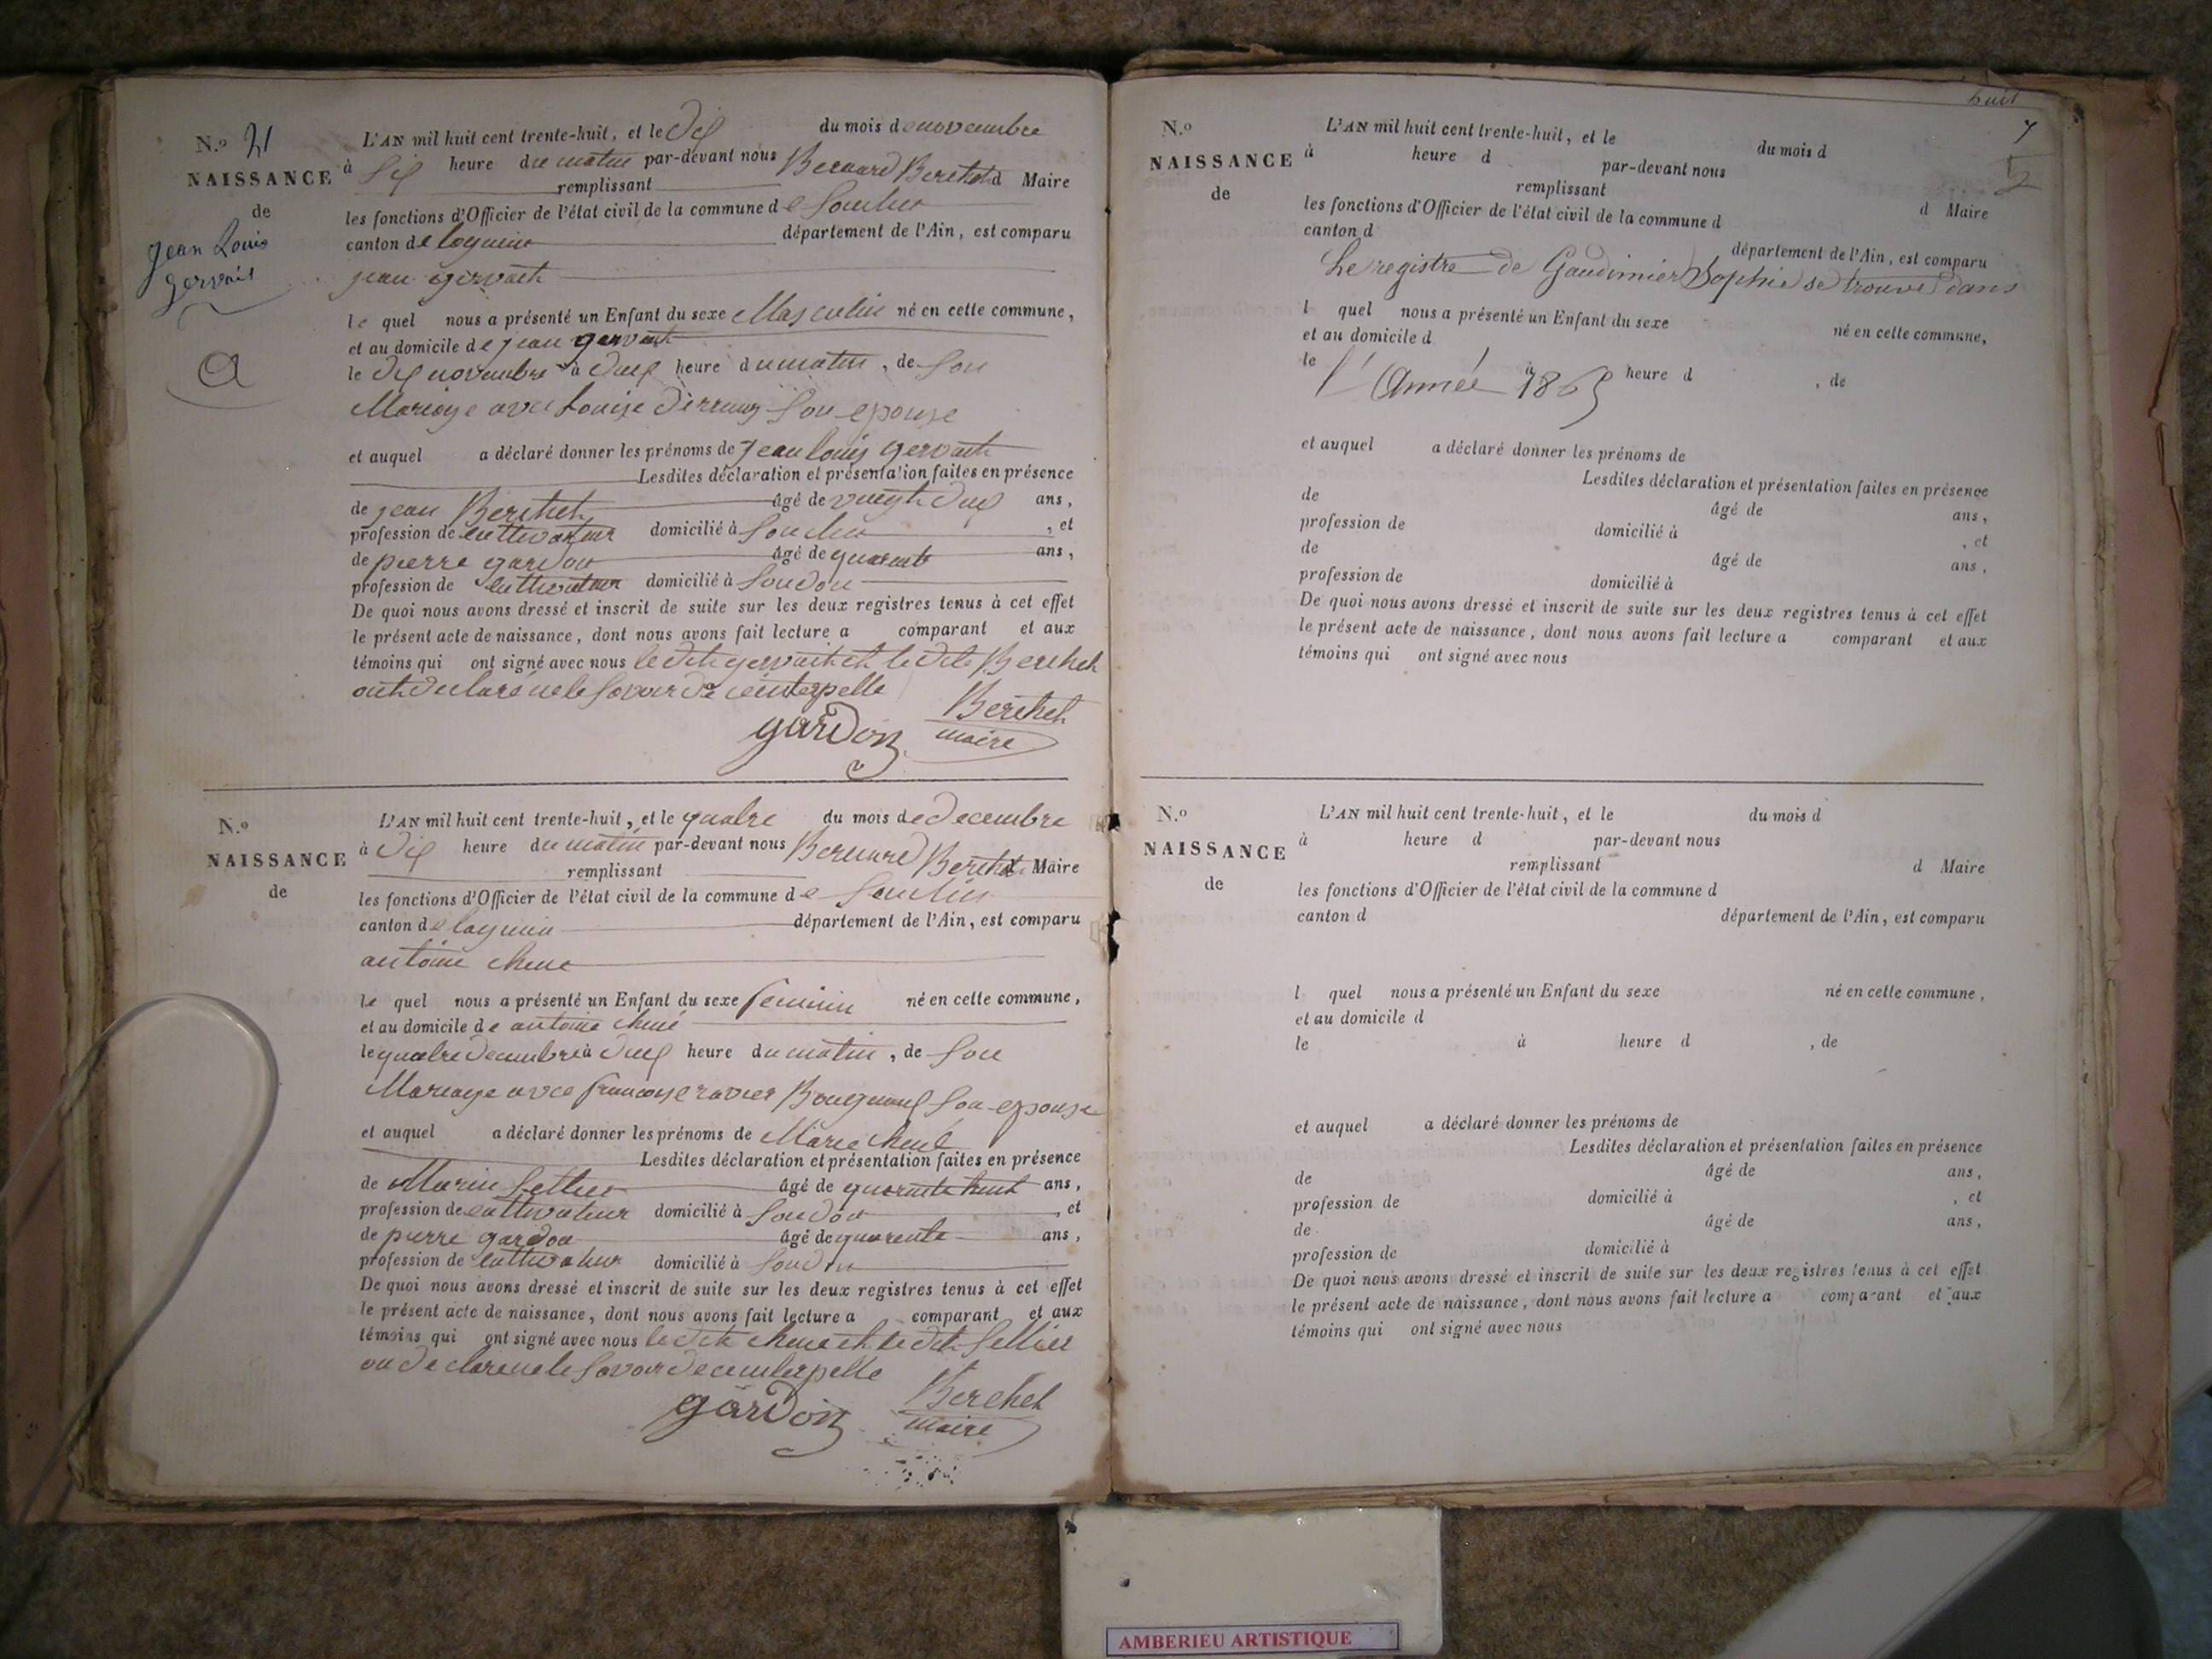 N.o 21
NAISSANCE
de
jean Louis
gervait
a
L'AN mil huit cent trente-huit, et le dix du mois de novembre
à six heure du matin par-devant nous Bernard Berthet d Maire
remplissant
les fonctions d'Officier de l'état civil de la commune de
canton de lagnieu département de l'Ain, est comparu
jean gervait
le quel nous a présenté un Enfant du sexe Masculin né en cette commune,
et au domicile de jean gervait
le dix novembre à deux heure du matin, de Son
Mariage avec Louise Son epouse
et auquel a déclaré donner les prénoms de jean louis gervait
Lesdites déclaration et présentation faites en présence
de jean Berthet âgé de vingt deux ans,
profession de cultivateur domicilié à , et
de pierre gardon âgé de quarante ans,
profession de cultivateur domicilié à Soudon
De quoi nous avons dressé et inscrit de suite sur les deux registres tenus à cet effet
le présent acte de naissance, dont nous avons fait lecture a comparant et aux
témoins qui ont signé avec nous le dit gervait et le dit Berthet
ont declaré ne le Savoir de ce interpelle
gardon Berthet
maire
N.o
NAISSANCE
de
L'AN mil huit cent trente-huit, et le quatre du mois de decembre
à dix heure du matin par-devant nous Bernard Berthet d Maire
remplissant
les fonctions d'Officier de l'état civil de la commune de
canton de lagnieu département de l'Ain, est comparu
antoine chene
le quel nous a présenté un Enfant du sexe feminin né en cette commune,
et au domicile de antoine chené
le quatre decembre à deux heure du matin, de Son
Mariage avec francoise ravier Son epouse
et auquel a déclaré donner les prénoms de Marie chené
Lesdites déclaration et présentation faites en présence
de Marin Sellier âgé de quarante huit ans,
profession de cultivateur domicilié à Soudon , et
de pierre gardon âgé de quarente ans,
profession de cultivateur domicilié à Soudon
De quoi nous avons dressé et inscrit de suite sur les deux registres tenus à cet effet
le présent acte de naissance, dont nous avons fait lecture a comparant et aux
témoins qui ont signé avec nous le dit chene et le dit Sellier
on declare ne le Savoir de ce interpelle
gardon Berthet
maire
huit
7
5
N.o
NAISSANCE
de
L'AN mil huit cent trente-huit, et le du mois d
à heure d par-devant nous
remplissant d Maire
les fonctions d'Officier de l'état civil de la commune d
canton d département de l'Ain, est comparu
Le registre de Gaudimier Sophie se trouve dans
l quel nous a présenté un Enfant du sexe né en cette commune,
et au domicile d
le à heure d , de
l'Année 1865
et auquel a déclaré donner les prénoms de
Lesdites déclaration et présentation faites en présence
de âgé de ans,
profession de domicilié à , et
de âgé de ans,
profession de domicilié à
De quoi nous avons dressé et inscrit de suite sur les deux registres tenus à cet effet
le présent acte de naissance, dont nous avons fait lecture a comparant et aux
témoins qui ont signé avec nous
N.o
NAISSANCE
de
L'AN mil huit cent trente-huit, et le du mois d
à heure d par-devant nous
remplissant d Maire
les fonctions d'Officier de l'état civil de la commune d
canton d département de l'Ain, est comparu
l quel nous a présenté un Enfant du sexe né en cette commune,
et au domicile d
le à heure d , de
et auquel a déclaré donner les prénoms de
Lesdites déclaration et présentation faites en présence
de âgé de ans,
profession de domicilié à , et
de âgé de ans,
profession de domicilié à
De quoi nous avons dressé et inscrit de suite sur les deux registres tenus à cet effet
le présent acte de naissance, dont nous avons fait lecture a comparant et aux
témoins qui ont signé avec nous
AMBERIEU ARTISTIQUE